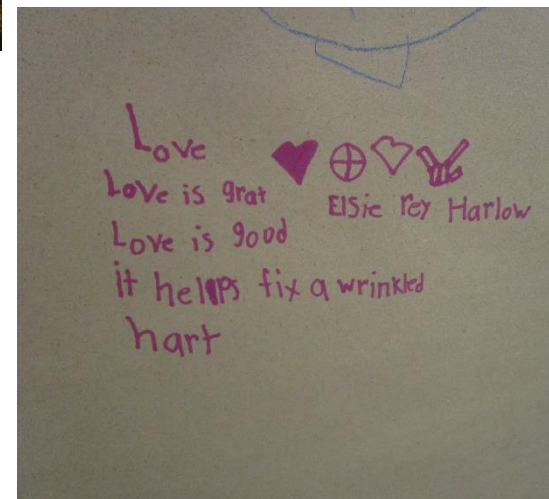 Love
Love is grat
Elsie rey Harlow
Love is good
it helps fix a wrinkled
hart